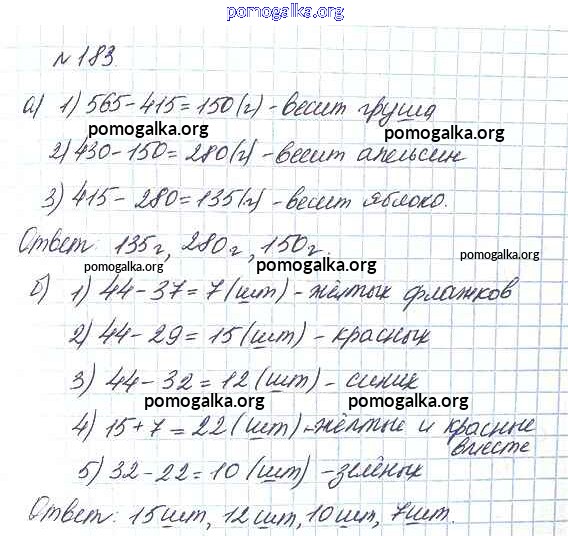 pomogalka.org
№183
а) 1) 565-415=150(г) - весит груша
pomogalka.org pomogalka.org
2) 430-150=280(г) - весит апельсин
pomogalka.org
3) 415-280=135(г) - весит яблоко.
Ответ: 135г, 280г, 150г.
pomogalka.org pomogalka.org pomogalka.org
б) 1) 44-37=7(шт) - жёлтых флажков
2) 44-29=15(шт) - красных
pomogalka.org
3) 44-32=12(шт) - синих
pomogalka.org pomogalka.org
4) 15+7=22(шт) - жёлтые и красные
вместе
5) 32-22=10(шт) - зелёных
pomogalka.org
Ответ: 15шт, 12шт, 10шт, 7шт.